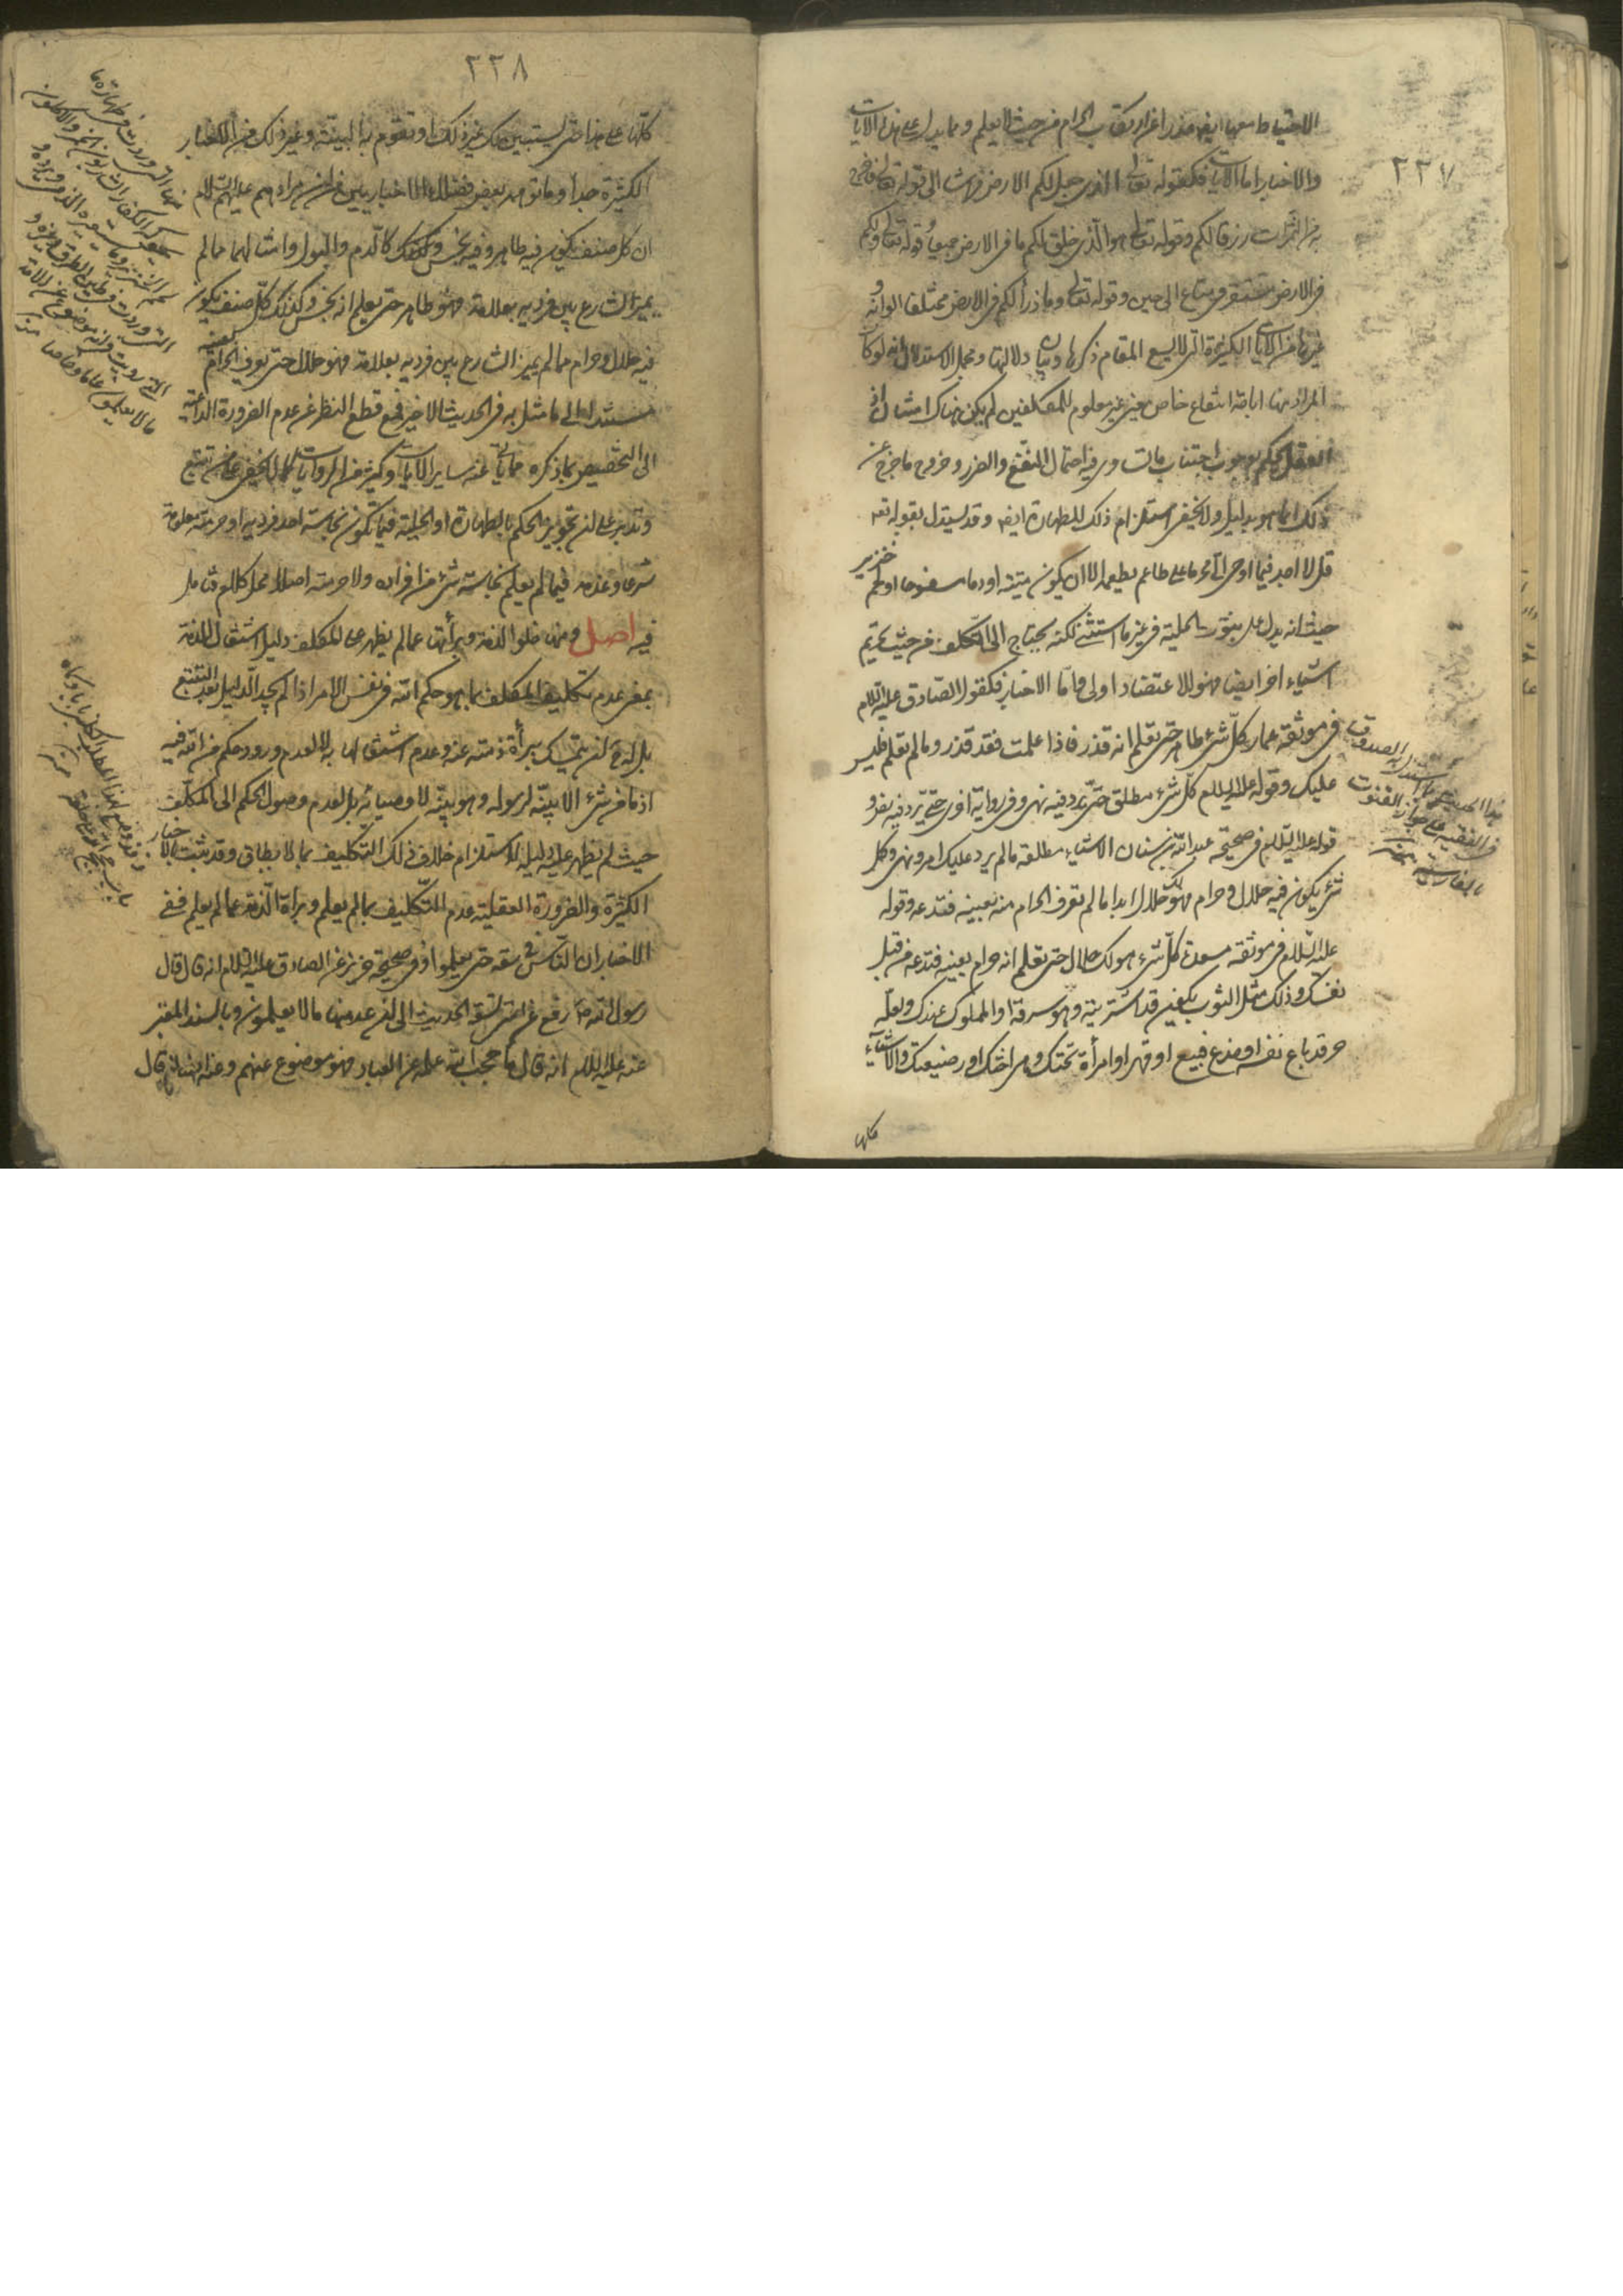 ٢٣٧
الاحتياط معها ايضا حذرا عن ارتكاب الحرام من حيث لا يعلم ومما يدل على هذا الايات
والاخبار اما الايات فكقوله تعالى الذى جعل لكم الارض فراشا الى قوله تعالى فاخرج
به من الثمرات رزقا لكم وقوله تعالى هو الذى خلق لكم ما فى الارض جميعا وقوله تعالى ولكم
فى الارض مستقر ومتاع الى حين وقوله تعالى وما ذرأ لكم فى الارض مختلفا الوانه و
غيرها من الايات الكثيرة التى لا يسع المقام ذكرها وبيان دلالتها ومحل الاستدلال انه لو كان
المراد بها اباحة انتفاع خاص معين غير معلوم للمكلفين لم يكن هناك امتنان اذ
العقل يحكم بوجوب اجتناب ما تساوى فيه احتمال النفع والضرر وخروج ما خرج عن
ذلك انما هو بدليل ولا يخفى استلزام ذلك للطهارة ايضا وقد يستدل بقوله تعه
قل لا اجد فيما اوحى الى محرما على طاعم يطعمه الا ان يكون ميتة او دما مسفوحا او لحم خنزير
حيث انه يدل على ثبوت الحلية فى غير ما استثنى لكنه يحتاج الى التكلف من حيث تحريم
اشياء اخر ايضا فهو للاعتضاد اولى واما الاخبار فكقول الصادق عليه السلام
فى موثقة عمار كل شئ طاهر حتى تعلم انه قذر فاذا علمت فقد قذر وما لم تعلم فليس
عليك وقوله عليه السلام كل شئ مطلق حتى يرد فيه نهى وفى رواية اخرى حتى يرد فيه نص و
قوله عليه السلام فى صحيحة عبد الله بن سنان الاشياء مطلقة ما لم يرد عليك امر ونهى وكل
شئ يكون فيه حلال وحرام فهو لك حلال ابدا ما لم تعرف الحرام منه بعينه فتدعه وقوله
عليه السلام فى موثقة مسعدة كل شئ هو لك حلال حتى تعلم انه حرام بعينه فتدعه من قبل
نفسك وذلك مثل الثوب يكون قد اشتريته وهو سرقة او المملوك عندك ولعله
حر قد باع نفسه او خدع فبيع او قهر او امرأة تحتك وهى اختك او رضيعتك والاشياء
كلها
هذا الحديث مما استدل به الصدوق
فى الفقيه على جواز القنوت
بالفارسية منه
٢٣٨
كلها على هذا حتى يستبين لك غير ذلك او تقوم به البينة وغير ذلك من الاخبار
الكثيرة جدا وما توهم بعض فضلاء الاخباريين من ان مرادهم عليهم السلام
ان كل صنف يكون فيه طاهر وفيه نجس وكذلك كالدم والبول وامثالهما مما لم
يميز الشارع بين فرديه بعلامة فهو طاهر حتى يعلم انه نجس وكذلك كل صنف يكون
فيه حلال وحرام مما لم يميز الشارع بين فرديه بعلامة فهو حلال حتى يعرف الحرام بعينه
مستندا الى ما مثل به فى الحديث الاخير فمع قطع النظر عن عدم الضرورة الداعية
الى التخصيص بما ذكره مما يأبى عنه ساير الايات وكثير من الروايات كما لا يخفى على من تتبع
وتدبر على ان تجويز الحكم بالطهارة او الحلية فيما تكون نجاسة احد فرديه او حرمته معلومة
شرعا وعدمه فيما لم يعلم نجاسة شئ من افراده ولا حرمته اصلا محل كلام فتامل
فيه اصل ومنها خلو الذمة وبرأتها عما لم يظهر على المكلف دليل اشتغال الذمة
بمعنى عدم تكليف المكلف بما هو حكم الله فى نفس الامر اذا لم يجد الدليل بعد التتبع
بل له ح ان يتمسك ببرأة ذمته عنه وعدم اشتغالها به لا لعدم ورود حكم من الله فيه
اذ ما من شئ الا بينه لرسوله وهو بينه لاوصيائه بل لعدم وصول الحكم الى المكلف
حيث لم يظهر عليه دليله لاستلزام خلاف ذلك التكليف بما لا يطاق وقد ثبت بالاخبار
الكثيرة والضرورة العقلية عدم التكليف بما لم يعلم وبراءة الذمة عما لم يعلم ففى
الاخبار ان الناس فى سعة حتى يعلموا وفى صحيحة حريز عن الصادق عليه السلام انه قال قال
رسول الله ص رفع عن امتى تسعة الحديث الى ان عد منها ما لا يعلمون وبالسند المعتبر
عنه عليه السلام انه قال ما حجب الله علمه عن العباد فهو موضوع عنهم وعنه ايضا انه قال